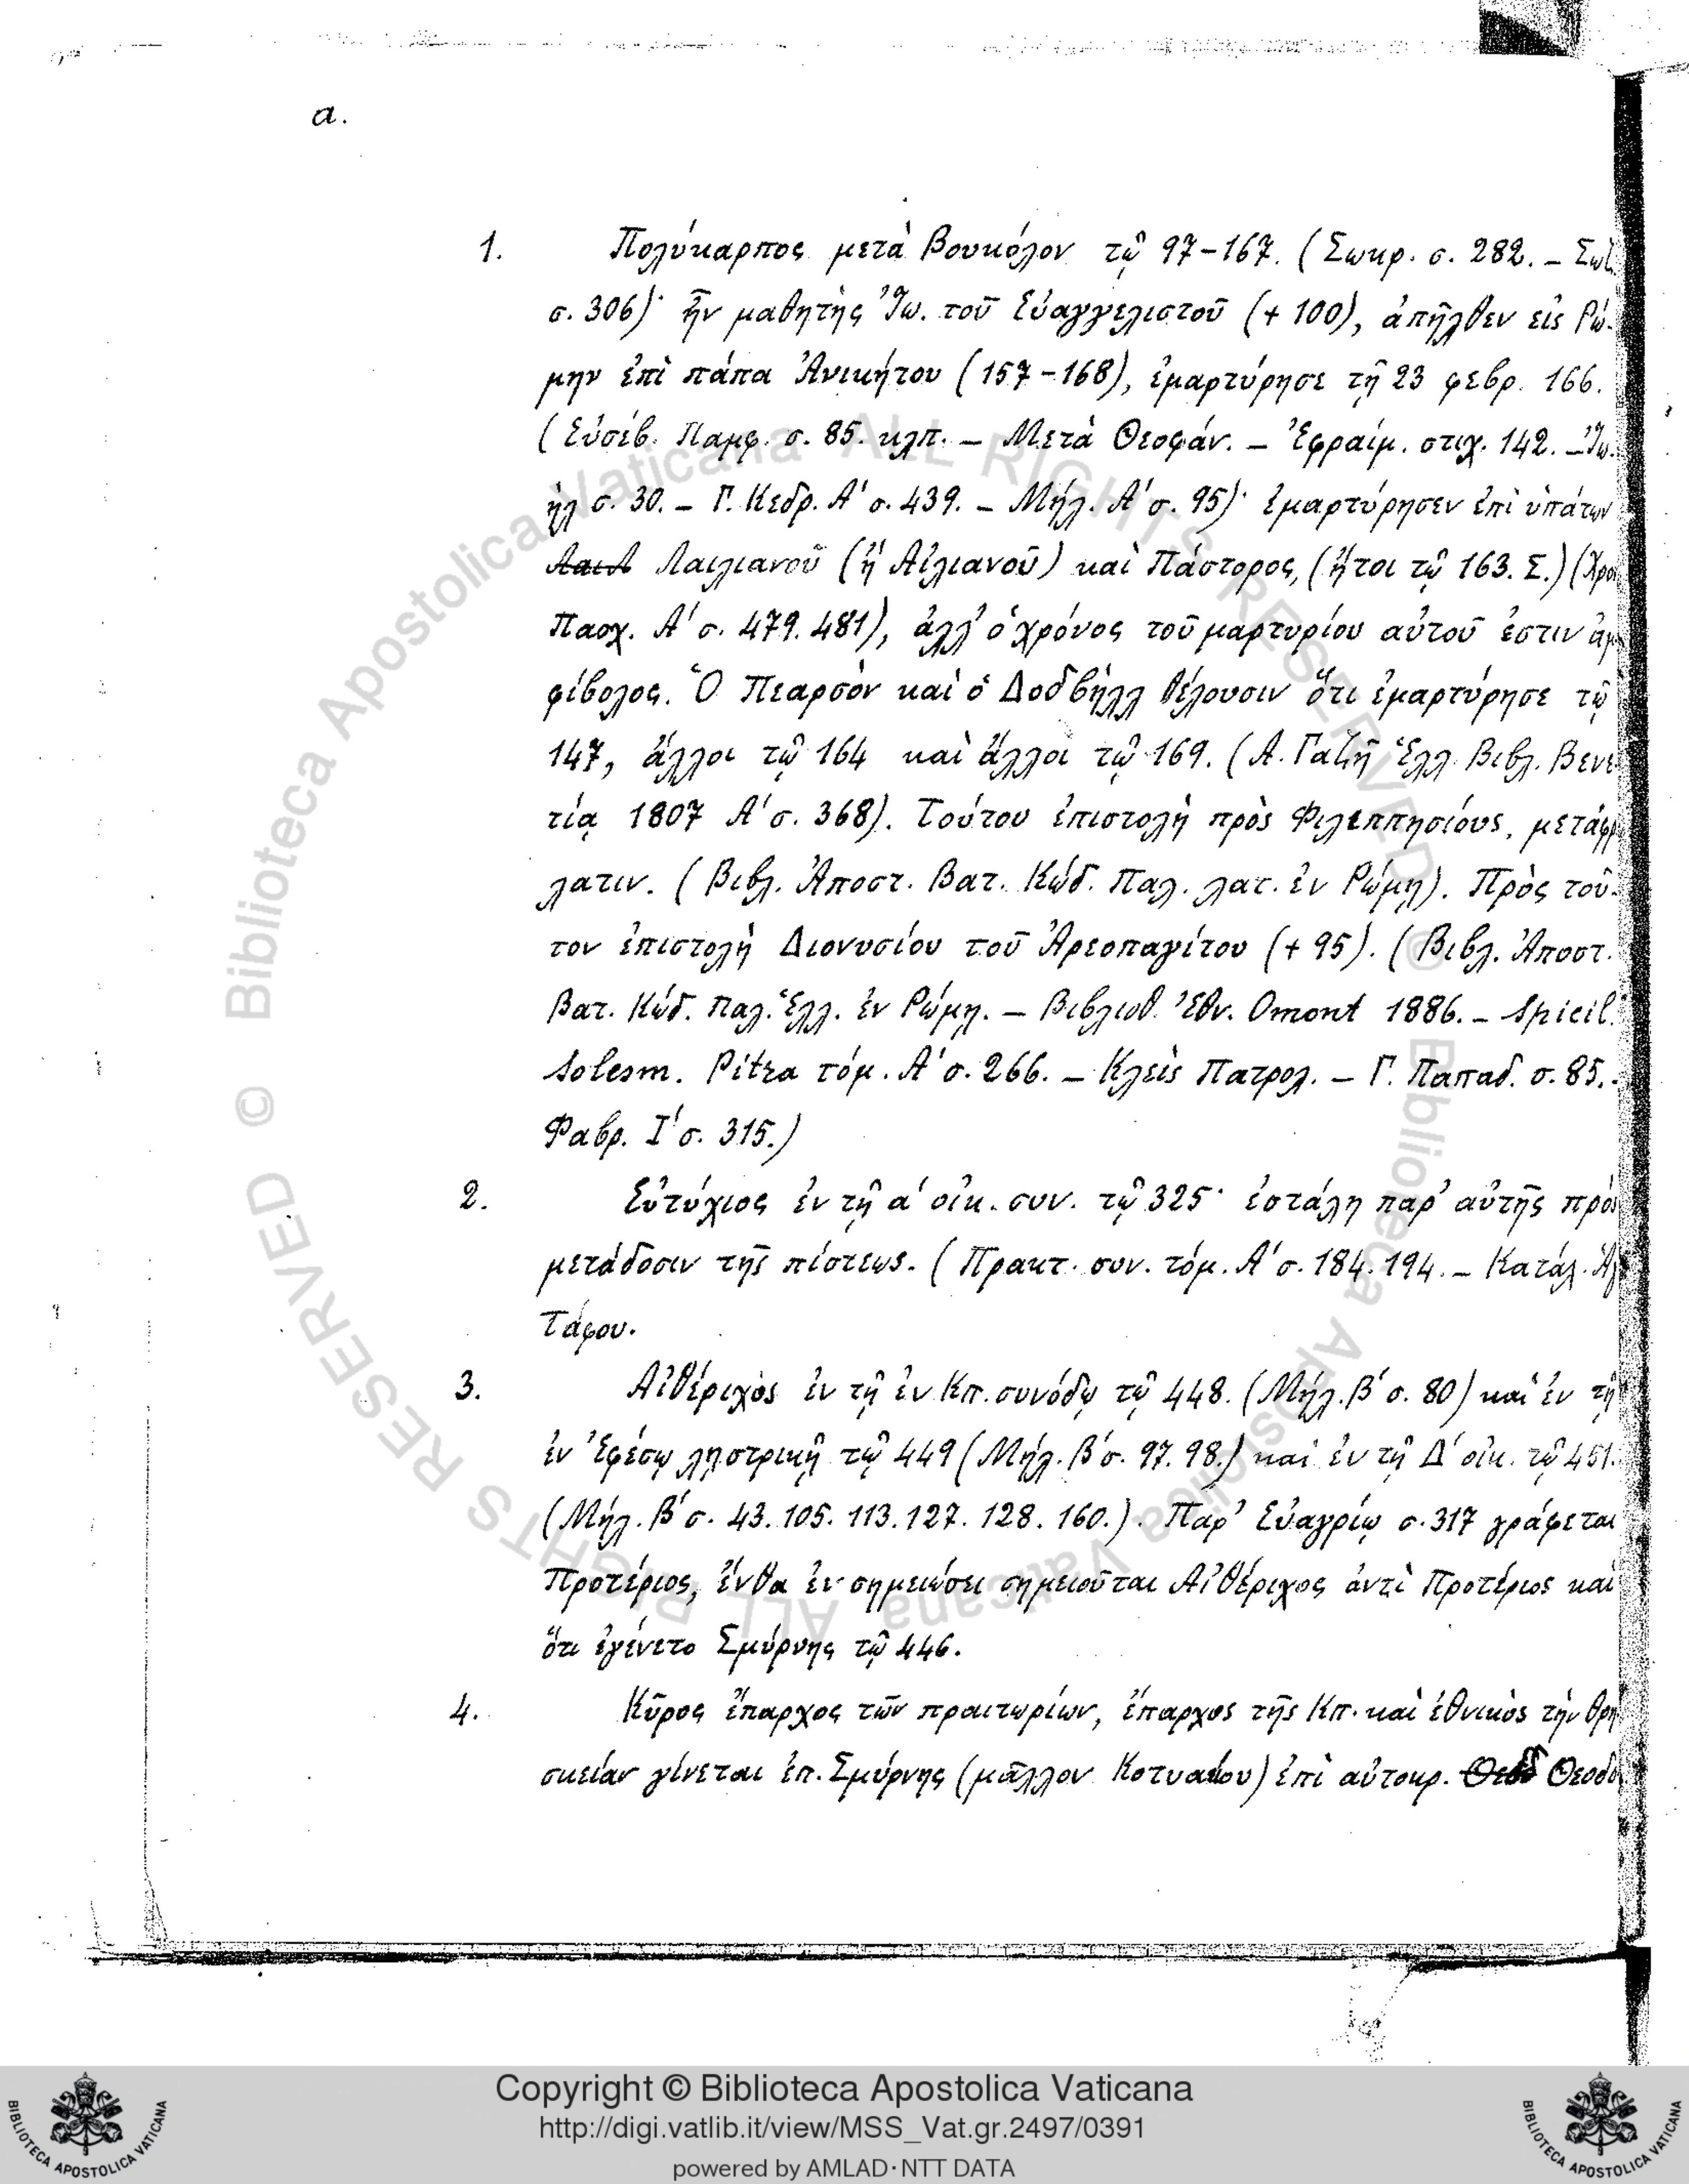 α.
1. Πολύκαρπος μετὰ Βουκόλον τῷ 97-167. (Σωκρ. σ. 282. – Σωζ.
σ. 306)· ἦν μαθητὴς Ἰω. τοῦ Εὐαγγελιστοῦ (+ 100), ἀπῆλθεν εἰς Ρώ-
μην ἐπὶ πάπα Ἀνικήτου (157-168), ἐμαρτύρησε τῇ 23 φεβρ. 166.
(Εὐσέβ. Παμφ. σ. 85. κλπ. – Μετὰ Θεοφάν. – Ἐφραίμ. στιχ. 142. – Ἰω-
ὴλ σ. 30. – Γ. Κεδρ. Α' σ. 439. – Μήλ. Α' σ. 95)· ἐμαρτύρησεν ἐπὶ ὑπάτων
Λαιλιανοῦ (ἢ Αἰλιανοῦ) καὶ Πάστορος, (ἤτοι τῷ 163. Σ.) (Χρον
Πασχ. Α' σ. 479. 481), ἀλλ' ὁ χρόνος τοῦ μαρτυρίου αὐτοῦ ἐστιν ἀμ
φίβολος. Ὁ Πεαρσὸν καὶ ὁ Δοδβὴλλ θέλουσιν ὅτι ἐμαρτύρησε τῷ
147, ἄλλοι τῷ 164 καὶ ἄλλοι τῷ 169. (Α. Γαζῆ Ἑλλ. Βιβλ. Βενε
τίᾳ 1807 Α' σ. 368). Τούτου ἐπιστολὴ πρὸς Φιλιππησίους, μετάφρ
λατιν. (Βιβλ. Ἀποστ. Βατ. Κώδ. Παλ. λατ. ἐν Ρώμῃ). Πρὸς τοῦ-
τον ἐπιστολὴ Διονυσίου τοῦ Ἀρεοπαγίτου (+ 95). (Βιβλ. Ἀποστ.
Βατ. Κώδ. Παλ. Ἑλλ. ἐν Ρώμῃ. – Βιβλιοθ. Ἐθν. Omont 1886. – Spicil.
Solesm. Pitra τόμ. Α' σ. 266. – Κλεὶς Πατρολ. – Γ. Παπαδ. σ. 85. –
Φαβρ. Ι' σ. 315.)
2. Εὐτύχιος ἐν τῇ α' οἰκ. συν. τῷ 325· ἐστάλη παρ' αὐτῆς πρὸς
μετάδοσιν τῆς πίστεως. (Πρακτ. συν. τόμ. Α' σ. 184. 194. – Κατάλ. Ἁγ
Τάφου.
3. Αἰθέριχος ἐν τῇ ἐν Κπ. συνόδῳ τῷ 448. (Μήλ. Β' σ. 80) καὶ ἐν τῇ
ἐν Ἐφέσῳ λῃστρικῇ τῷ 449 (Μήλ. Β' σ. 97. 98.) καὶ ἐν τῇ Δ' οἰκ. τῷ 451.
(Μήλ. Β' σ. 43. 105. 113. 127. 128. 160.). Παρ' Εὐαγρίῳ σ. 317 γράφεται
Προτέριος, ἔνθα ἐν σημειώσει σημειοῦται Αἰθέριχος ἀντὶ Προτέριος καὶ
ὅτι ἐγένετο Σμύρνης τῷ 446.
4. Κῦρος ἔπαρχος τῶν πραιτωρίων, ἔπαρχος τῆς Κπ. καὶ ἐθνικὸς τὴν θρη
σκείαν γίνεται ἐπ. Σμύρνης (μᾶλλον Κοτυαίου) ἐπὶ αὐτοκρ. Θεοδο
© Biblioteca Apostolica Vaticana ALL RIGHTS RESERVED © Biblioteca Apostolica Vaticana ALL RIGHTS RESERVED
Copyright © Biblioteca Apostolica Vaticana
http://digi.vatlib.it/view/MSS_Vat.gr.2497/0391
powered by AMLAD·NTT DATA
BIBLIOTECA APOSTOLICA VATICANA
BIBLIOTECA APOSTOLICA VATICANA